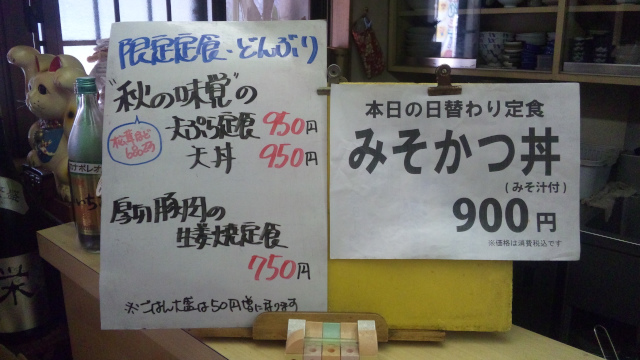 限定定食・どんぶり
"秋の味覚"の
松茸など
天ぷら定食 950円
天丼 950円
厚切豚肉の
生姜焼定食
750円
※ごはん大盛は50円増になります
本日の日替わり定食
みそかつ丼
(みそ汁付)
900円
※価格は消費税込です